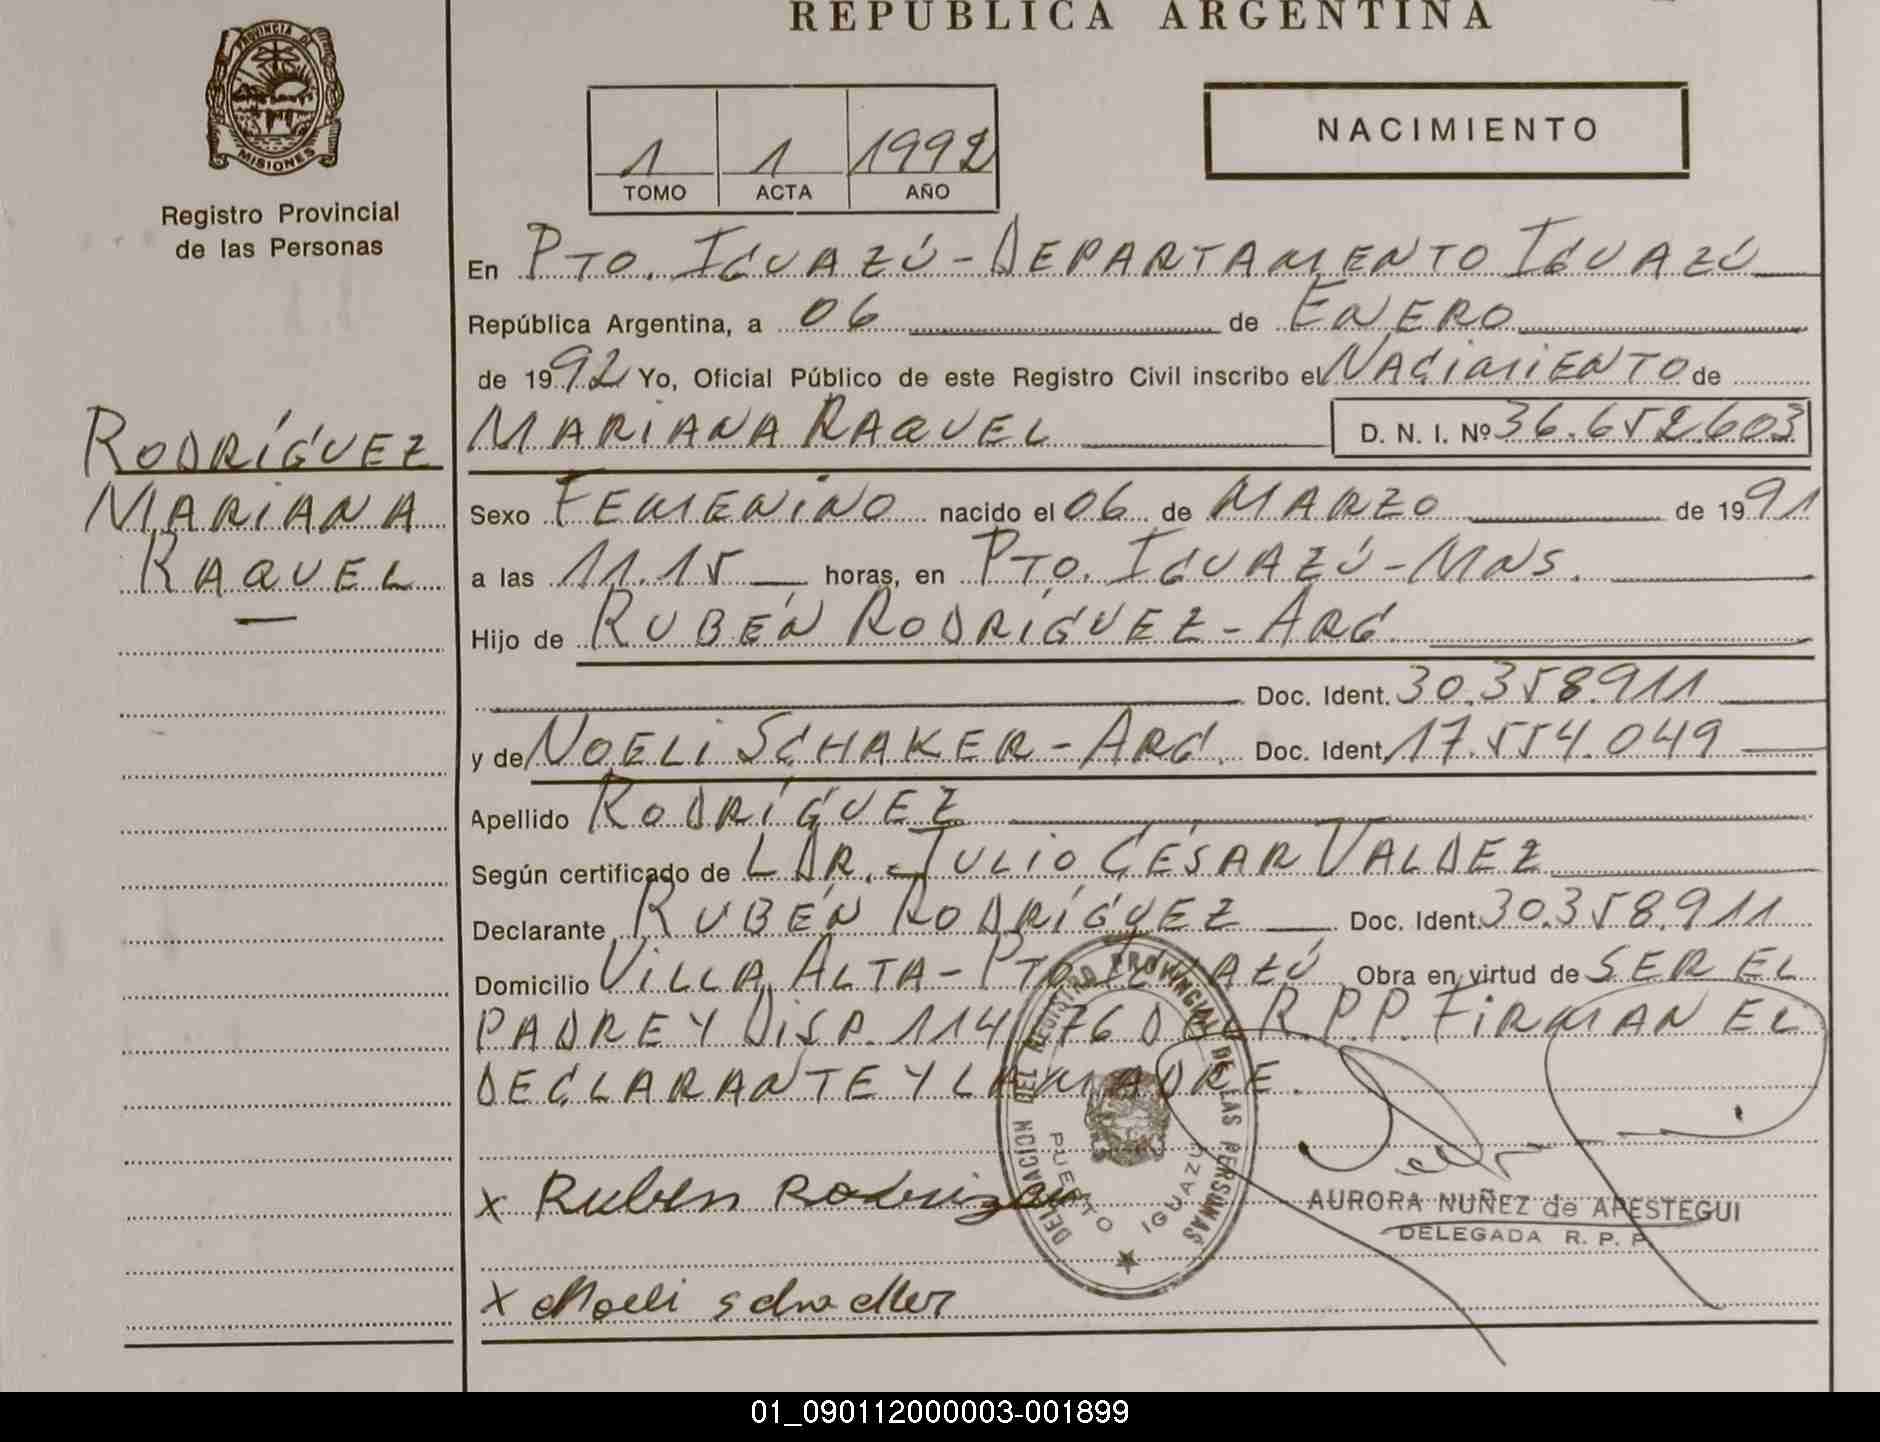 REPUBLICA ARGENTINA
PROVINCIA DE
MISIONES
Registro Provincial
de las Personas
1 1 1992
TOMO ACTA AÑO
NACIMIENTO
En PTO. IGUAZÚ - DEPARTAMENTO IGUAZÚ
República Argentina, a 06 de ENERO
de 1992 Yo, Oficial Público de este Registro Civil inscribo el NACIMIENTO de
MARIANA RAQUEL D. N. I. Nº 36.652.603
RODRÍGUEZ
MARIANA
RAQUEL
Sexo FEMENINO nacido el 06 de MARZO de 1991
a las 11.15 horas, en PTO. IGUAZÚ - MNS.
Hijo de RUBÉN RODRÍGUEZ - ARG
Doc. Ident. 30.358.911
y de NOELI SCHAKER - ARG. Doc. Ident. 17.554.049
Apellido RODRÍGUEZ
Según certificado de L DR. JULIO CÉSAR VALDEZ
Declarante RUBÉN RODRÍGUEZ Doc. Ident. 30.358.911
Domicilio VILLA ALTA - PTO. IGUAZÚ Obra en virtud de SER EL
PADRE Y DISP. 114/76 DEL R.P.P. FIRMAN EL
DECLARANTE Y LA MADRE.
DELEGACION DEL REGISTRO PROVINCIAL DE LAS PERSONAS
PUERTO IGUAZU
x Ruben Rodriguez
AURORA NUÑEZ de APESTEGUI
DELEGADA R. P. P.
x Noeli
01_090112000003-001899